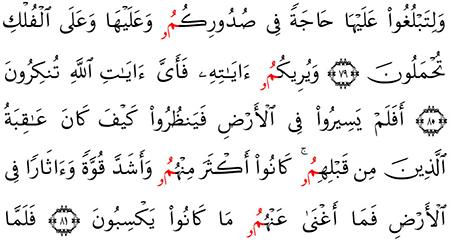 وَلِتَبْلُغُوا۟ عَلَيْهَا حَاجَةً فِى صُدُورِكُمُۥ وَعَلَيْهَا وَعَلَى ٱلْفُلْكِ
تُحْمَلُونَ ٧٩ وَيُرِيكُمُۥ ءَايَٰتِهِۦ فَأَىَّ ءَايَٰتِ ٱللَّهِ تُنكِرُونَ
٨٠ أَفَلَمْ يَسِيرُوا۟ فِى ٱلْأَرْضِ فَيَنظُرُوا۟ كَيْفَ كَانَ عَٰقِبَةُ
ٱلَّذِينَ مِن قَبْلِهِمُۥ ۚ كَانُوٓا۟ أَكْثَرَ مِنْهُمُۥ وَأَشَدَّ قُوَّةً وَءَاثَارًا فِى
ٱلْأَرْضِ فَمَآ أَغْنَىٰ عَنْهُمُۥ مَا كَانُوا۟ يَكْسِبُونَ ٨١ فَلَمَّا